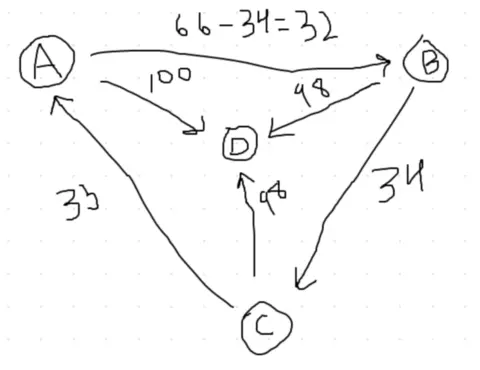 66-34=32
A
B
100
98
D
33
98
34
C